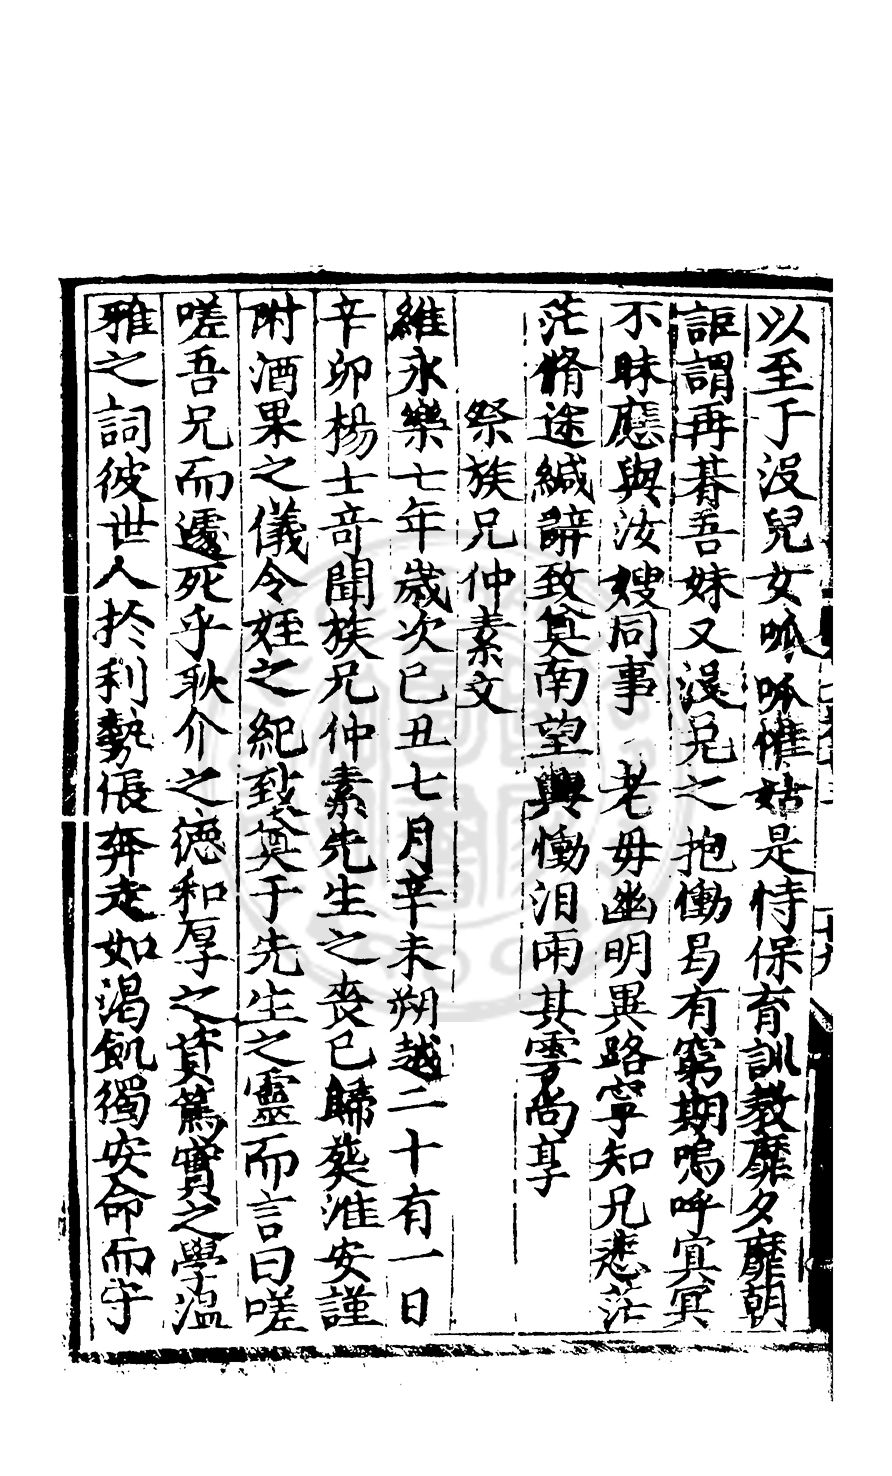 以至于沒兒女呱呱惟姑是恃保育訓教靡夕靡朝
詎謂再朞吾妹又沒兄之抱慟曷有窮期嗚呼冥冥
不昧應與汝嫂同事老母幽明異路寧知兄悲茫
茫脩途緘辭致奠南望興慟泪雨其雱尚享
祭族兄仲素文
維永樂七年歲次己丑七月辛未朔越二十有一日
辛卯楊士奇聞族兄仲素先生之喪已歸葬淮安謹
附酒果之儀令姪之紀致奠于先生之靈而言曰嗟
嗟吾兄而遽死乎耿介之德和厚之資篤實之學溫
雅之詞彼世人於利勢倀奔走如渴飢獨安命而守